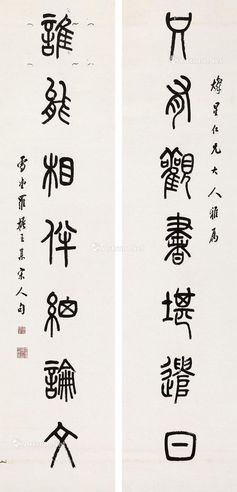 燦星仁兄大人雅屬
只有觀書堪遣日
誰能相伴細論文
雪堂羅振玉集宋人句